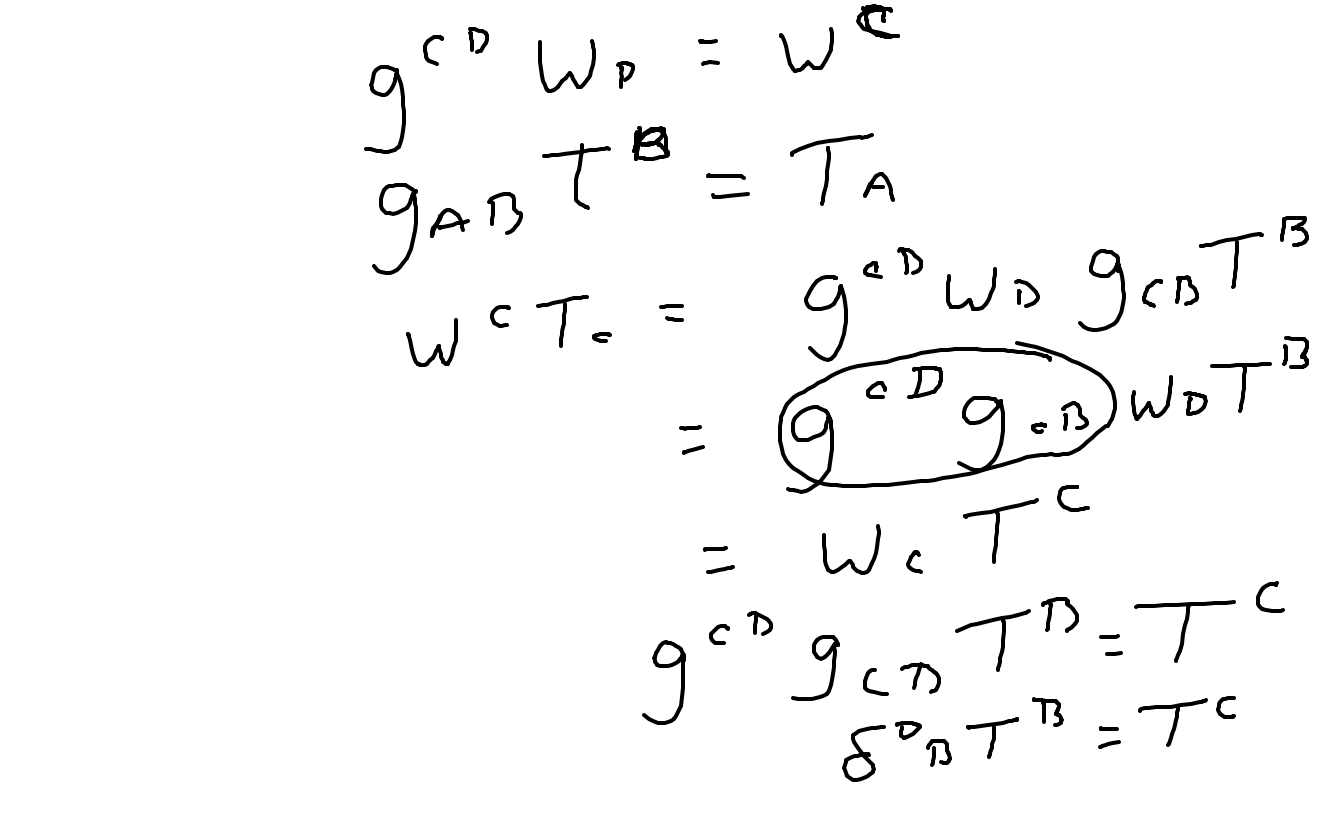 g^{CD} W_D = W^C
g_{AB} T^B = T_A
W^C T_C = g^{CD} W_D g_{CB} T^B
= g^{CD} g_{CB} W_D T^B
= W_C T^C
g^{CD} g_{CD} T^B = T^C
δ^D_B T^B = T^C